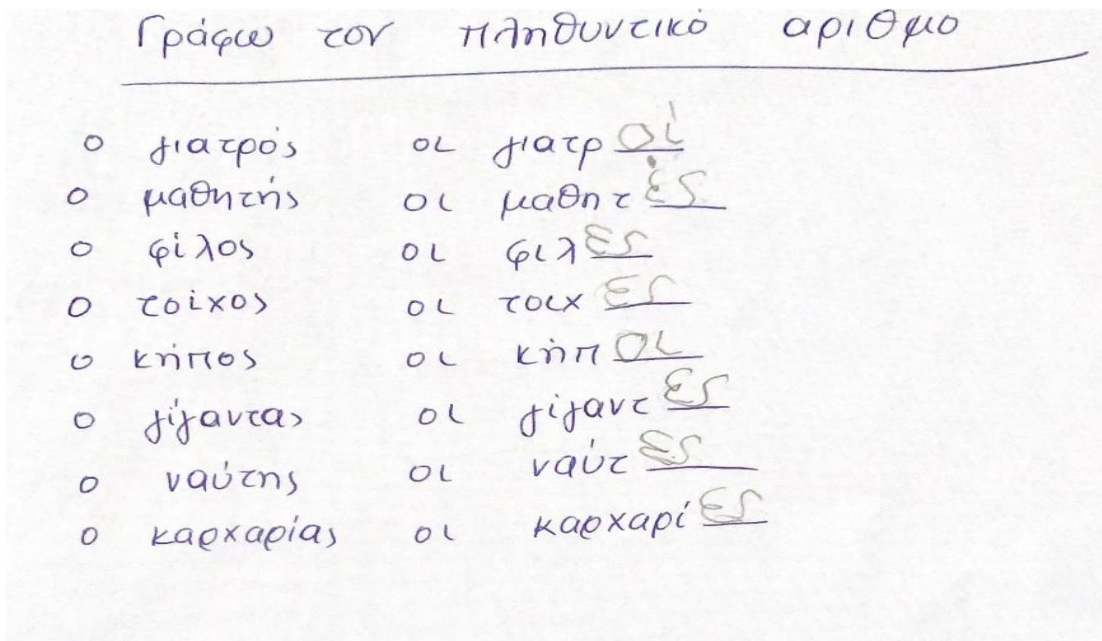 Γράφω τον πληθυντικό αριθμό
ο γιατρός οι γιατροί
ο μαθητής οι μαθητές
ο φίλος οι φιλες
ο τοίχος οι τοιχες
ο κήπος οι κήποι
ο γίγαντας οι γίγαντες
ο ναύτης οι ναύτες
ο καρχαρίας οι καρχαρίες